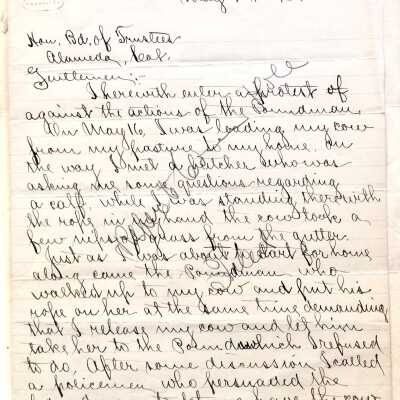 Hon. Bd. of Trustees
Alameda, Cal.
Gentlemen:-
I herewith enter a protest of
against the actions of the Poundman.
On May 16, I was leading my cow
from my pasture to my home. On
the way I met a butcher who was
asking me some questions regarding
a calf, while I was standing there with
the rope in my hand the cow took a
few nibs of grass from the gutter.
Just as I was about to start for home
along came the Poundman who
walked up to my cow and put his
rope on her at the same time demanding
that I release my cow and let him
take her to the Pound which I refused
to do. After some discussion I called
a policeman who persuaded the